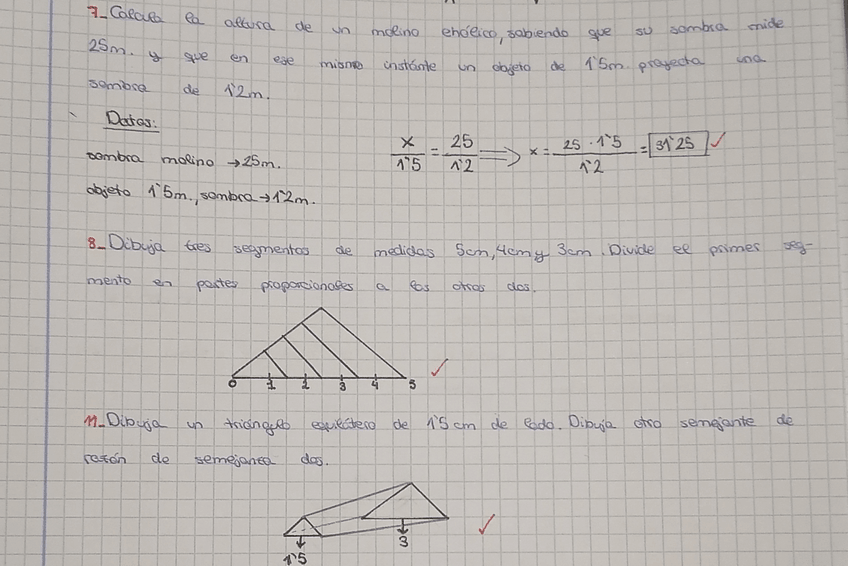 7_ Calcula la altura de un molino eheólico, sabiendo que su sombra mide
25m. y que en ese mismo instante un objeto de 1'5m. proyecta una
sombra de 1'2m.
Datos:
sombra molino →25m.
objeto 1'5m., sombra→1'2m.
x/1'5 = 25/1'2 ⟹ x = 25 · 1'5/1'2 = 31'25 ✓
8_ Dibuja tres segmentos de medidas 5cm, 4cm y 3cm. Divide el primer seg-
mento en partes proporcionales a los otros dos.
0 1 2 3 4 5 ✓
11_ Dibuja un triángulo equilátero de 1'5 cm de lado. Dibuja otro semejante de
razón de semejanza dos.
1'5 3 ✓